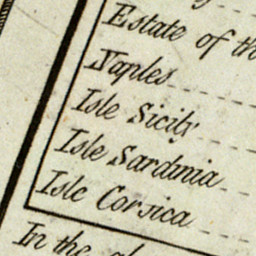 Estate of th
Naples
Isle Sicily
Isle Sardinia
Isle Corsica
In the